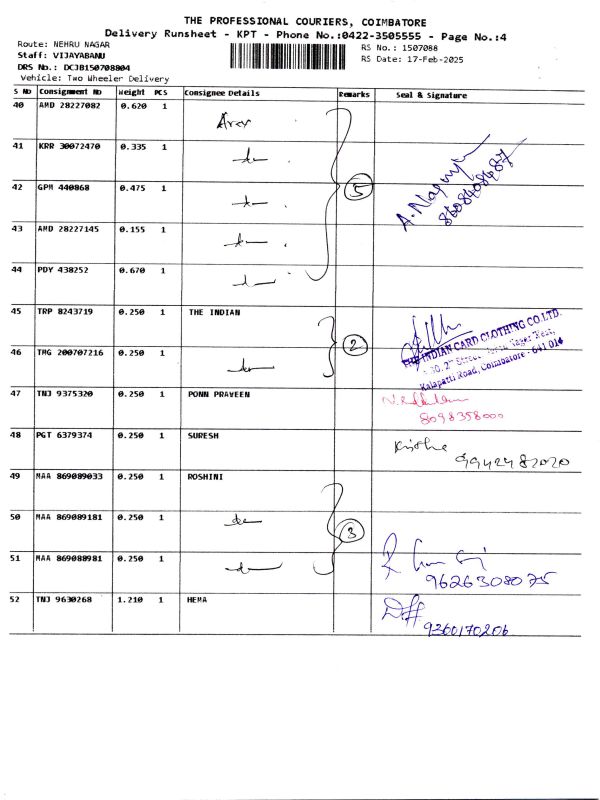 THE PROFESSIONAL COURIERS, COIMBATORE
Delivery Runsheet - KPT - Phone No.:0422-3505555 - Page No.:4
Route: NEHRU NAGAR
RS No.: 1507088
Staff: VIJAYABANU
RS Date: 17-Feb-2025
DRS No.: DCJB150708804
Vehicle: Two Wheeler Delivery
S NO Consignment No Weight PCS Consignee Details Remarks Seal & Signature
40 AMD 28227082 0.620 1
41 KRR 30072470 0.335 1
42 GPM 440868 0.475 1
5
A. Nagariya
8608408487
43 AMD 28227145 0.155 1
44 PDY 438252 0.670 1
45 TRP 8243719 0.250 1 THE INDIAN
2
THE INDIAN CARD CLOTHING CO.LTD.
Kalapatti Road, Coimbatore - 641 014
46 TMG 200707216 0.250 1
47 TNJ 9375320 0.250 1 PONN PRAVEEN
8098358000
48 PGT 6379374 0.250 1 SURESH
9942482020
49 MAA 869089033 0.250 1 ROSHINI
50 MAA 869089181 0.250 1
3
51 MAA 869088981 0.250 1
9626308075
52 TNJ 9630268 1.210 1 HEMA
9360170206